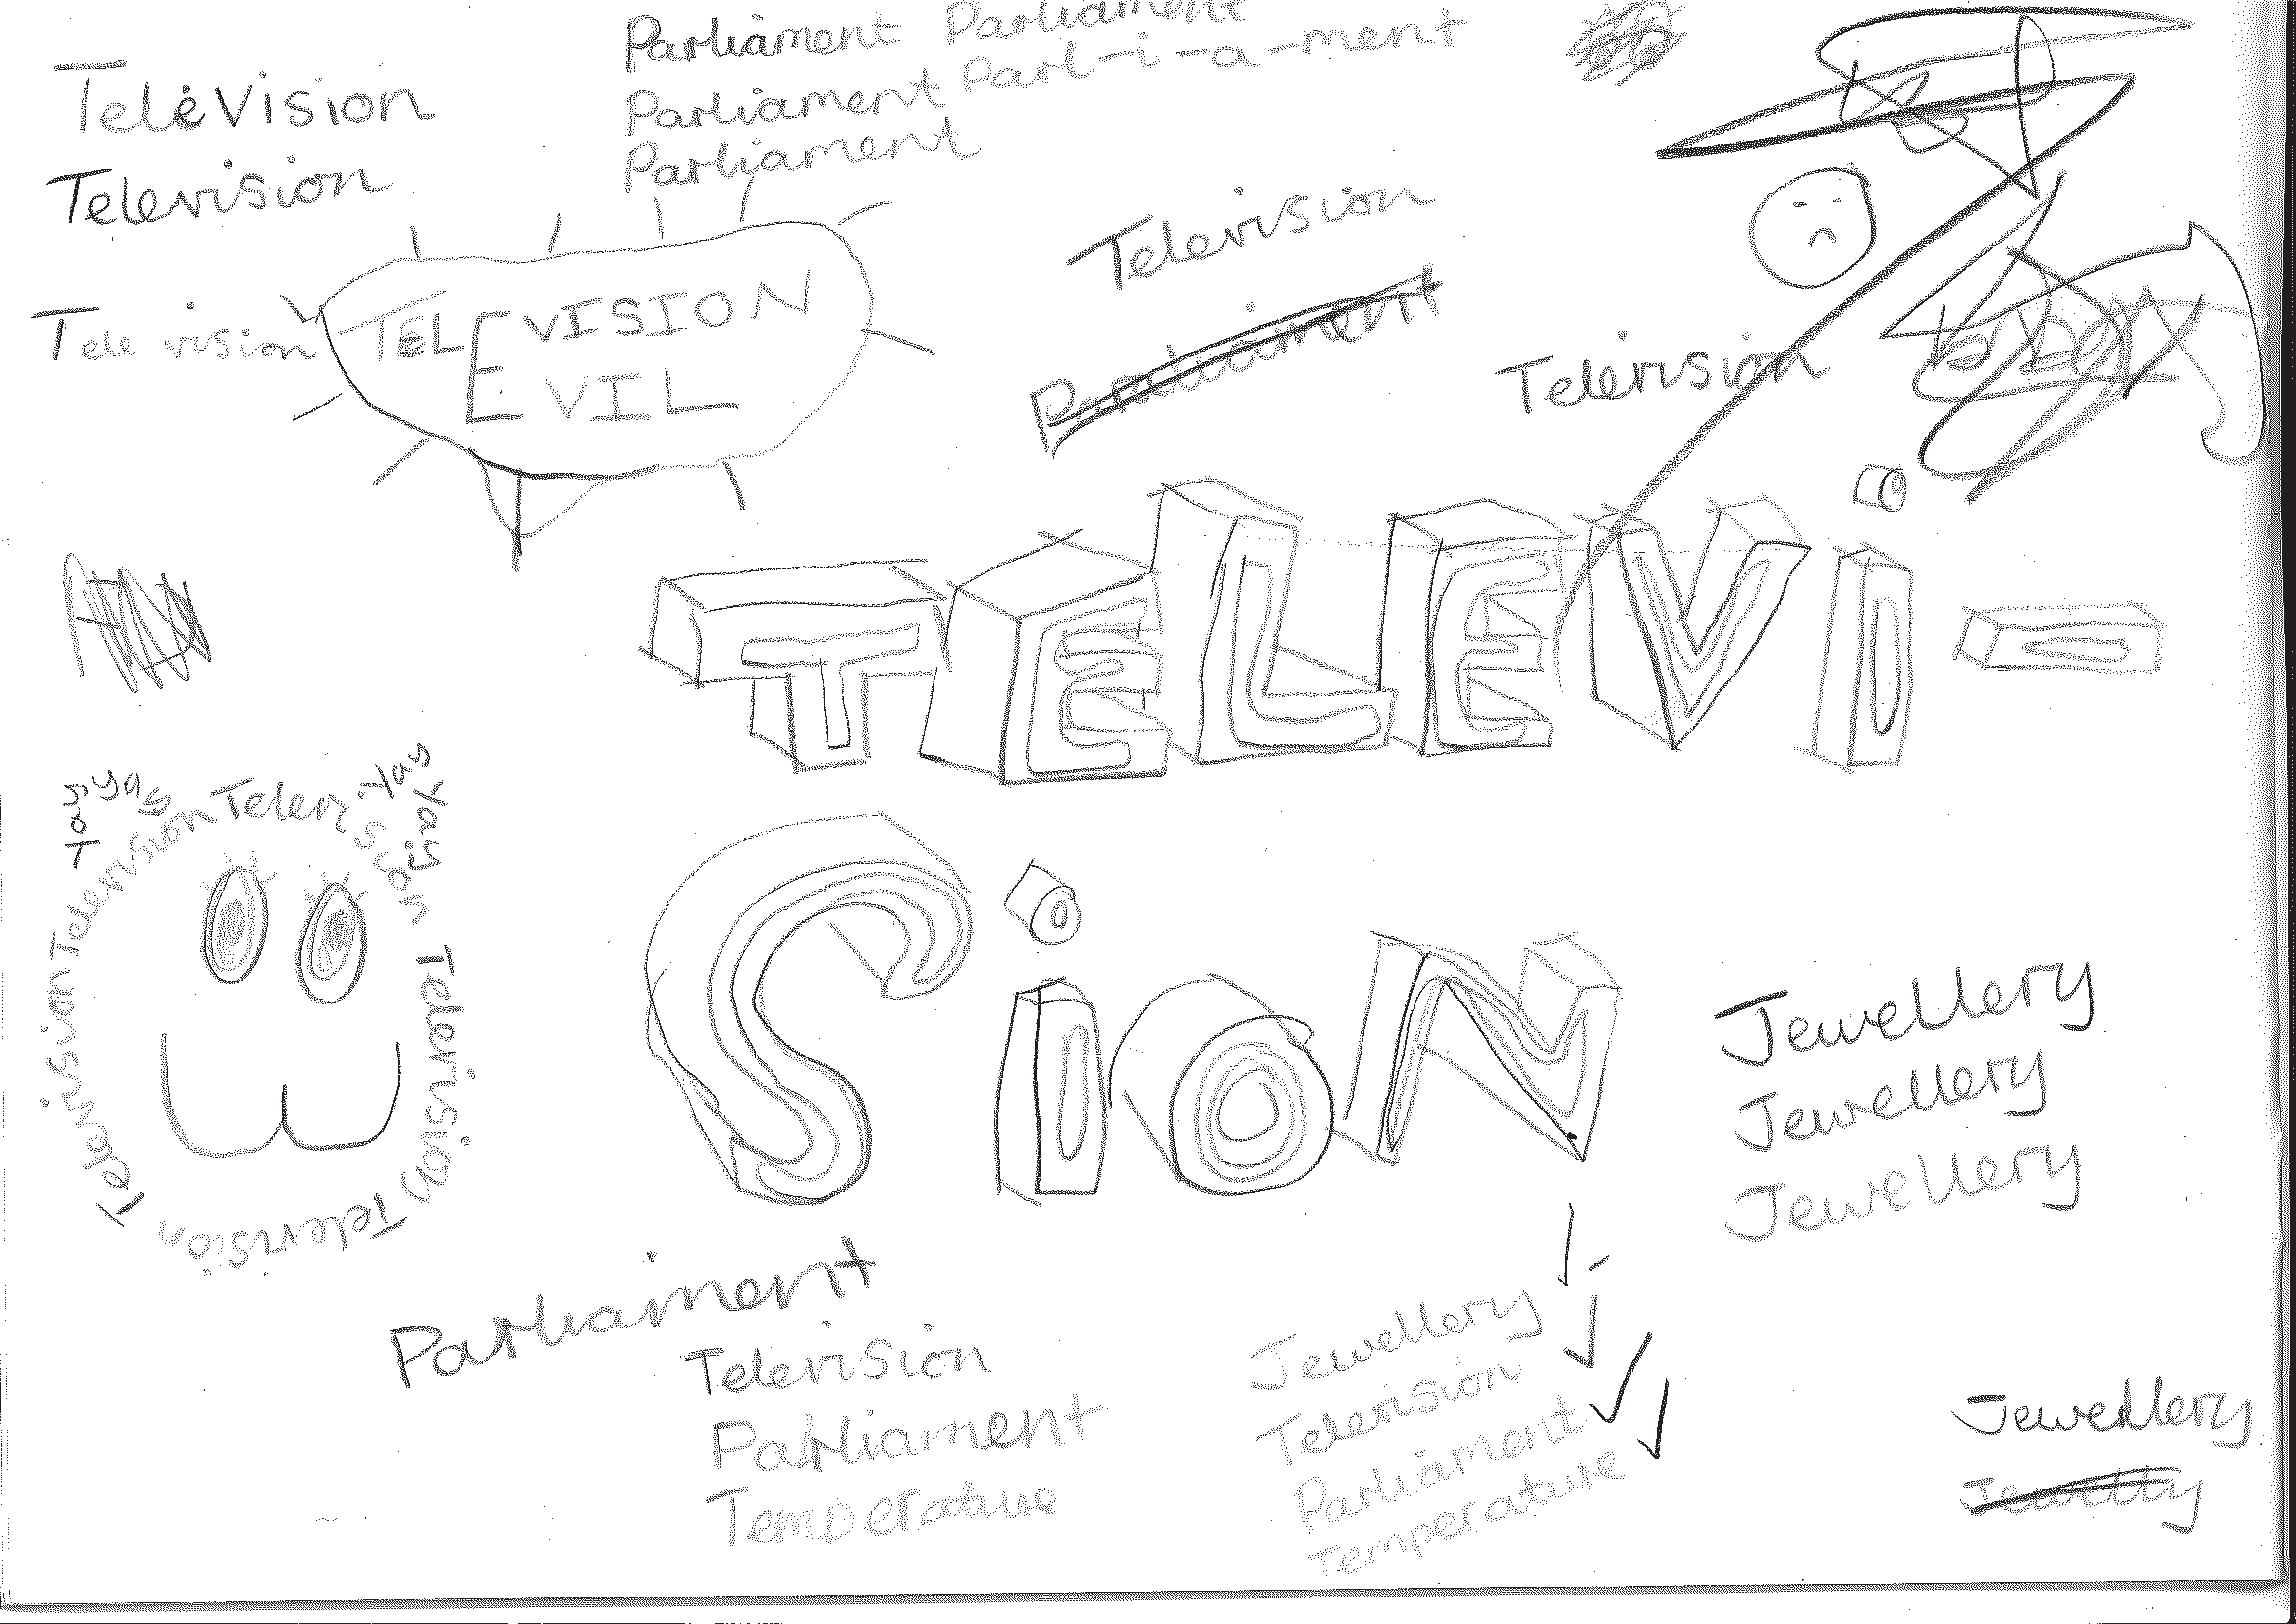 Parliament Parliament
Parliament Parl-i-a-ment
Parliament
Television
Television
Tele vision
TELEVISION
EVIL
Television
Parliament
Television
TELEVi-
SiON
Yay Yay
Yay Yay
Television Television Television Television Television Television
Jewellery
Jewellery
Jewellery
Parliament
Television
Parliament
Temperature
Jewellery
Television
Parliament
Temperature
Jewellery